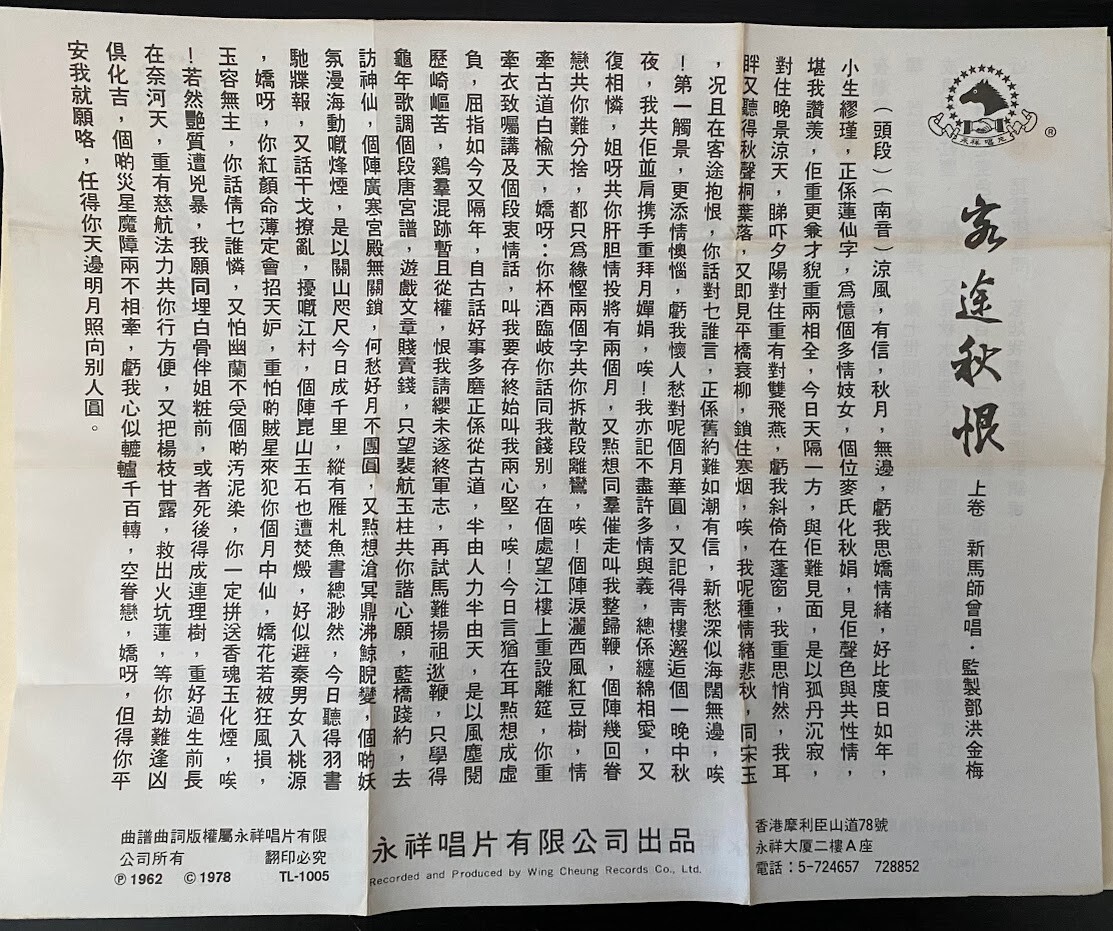 永祥唱片
®
客途秋恨
上卷 新馬師曾唱・監製鄧洪金梅
（頭段）（南音）涼風，有信，秋月，無邊，虧我思嬌情緒，好比度日如年，
小生繆瑾，正係蓮仙字，爲憶個多情妓女，個位麥氏化秋娟，見佢聲色與共性情，
堪我讚羨，佢重更兼才貌重兩相全，今日天隔一方，與佢難見面，是以孤丹沉寂，
對住晚景涼天，睇吓夕陽對住重有對雙飛燕，虧我斜倚在蓬窗，我重思悄然，我耳
畔又聽得秋聲桐葉落，又即見平橋衰柳，鎖住寒烟，唉，我呢種情緒悲秋，同宋玉
，况且在客途抱恨，你話對乜誰言，正係舊約難如潮有信，新愁深似海闊無邊，唉
！第一觸景，更添情懊惱，虧我懷人愁對呢個月華圓，又記得靑樓邂逅個一晚中秋
夜，我共佢並肩携手重拜月嬋娟，唉！我亦記不盡許多情與義，總係纏綿相愛，又
復相憐，姐呀共你肝胆情投將有兩個月，又㸃想同羣催走叫我整歸鞭，個陣幾回眷
戀共你難分捨，都只爲緣慳兩個字共你拆散段離鸞，唉！個陣淚灑西風紅豆樹，情
牽古道白楡天，嬌呀：你杯酒臨岐你話同我餞别，在個處望江樓上重設離筵，你重
牽衣致囑講及個段衷情話，叫我要存終始叫我兩心堅，唉！今日言猶在耳㸃想成虛
負，屈指如今又隔年，自古話好事多磨正係從古道，半由人力半由天，是以風塵閱
歷崎嶇苦，鷄羣混跡暫且從權，恨我請纓未遂終軍志，再試馬難揚祖逖鞭，只學得
龜年歌調個段唐宮譜，遊戲文章賤賣錢，只望裴航玉柱共你諧心願，藍橋踐約，去
訪神仙，個陣廣寒宮殿無關鎖，何愁好月不團圓，又㸃想滄冥鼎沸鯨睨變，個啲妖
氛漫海動嘅烽煙，是以關山咫尺今日成千里，縱有雁札魚書總渺然，今日聽得羽書
馳牒報，又話干戈撩亂，擾嘅江村，個陣崑山玉石也遭焚燬，好似避秦男女入桃源
，嬌呀，你紅顏命薄定會招天妒，重怕啲賊星來犯你個月中仙，嬌花若被狂風損，
玉容無主，你話倩乜誰憐，又怕幽蘭不受個啲汚泥染，你一定拼送香魂玉化煙，唉
！若然艷質遭兇暴，我願同埋白骨伴姐粧前，或者死後得成連理樹，重好過生前長
在奈河天，重有慈航法力共你行方便，又把楊枝甘露，救出火坑蓮，等你劫難逢凶
俱化吉，個啲災星魔障兩不相牽，虧我心似轆轤千百轉，空眷戀，嬌呀，但得你平
安我就願咯，任得你天邊明月照向别人圓。
曲譜曲詞版權屬永祥唱片有限
公司所有 翻印必究
Ⓟ 1962 © 1978 TL-1005
永祥唱片有限公司出品
Recorded and Produced by Wing Cheung Records Co., Ltd.
香港摩利臣山道78號
永祥大厦二樓A座
電話：5-724657 728852